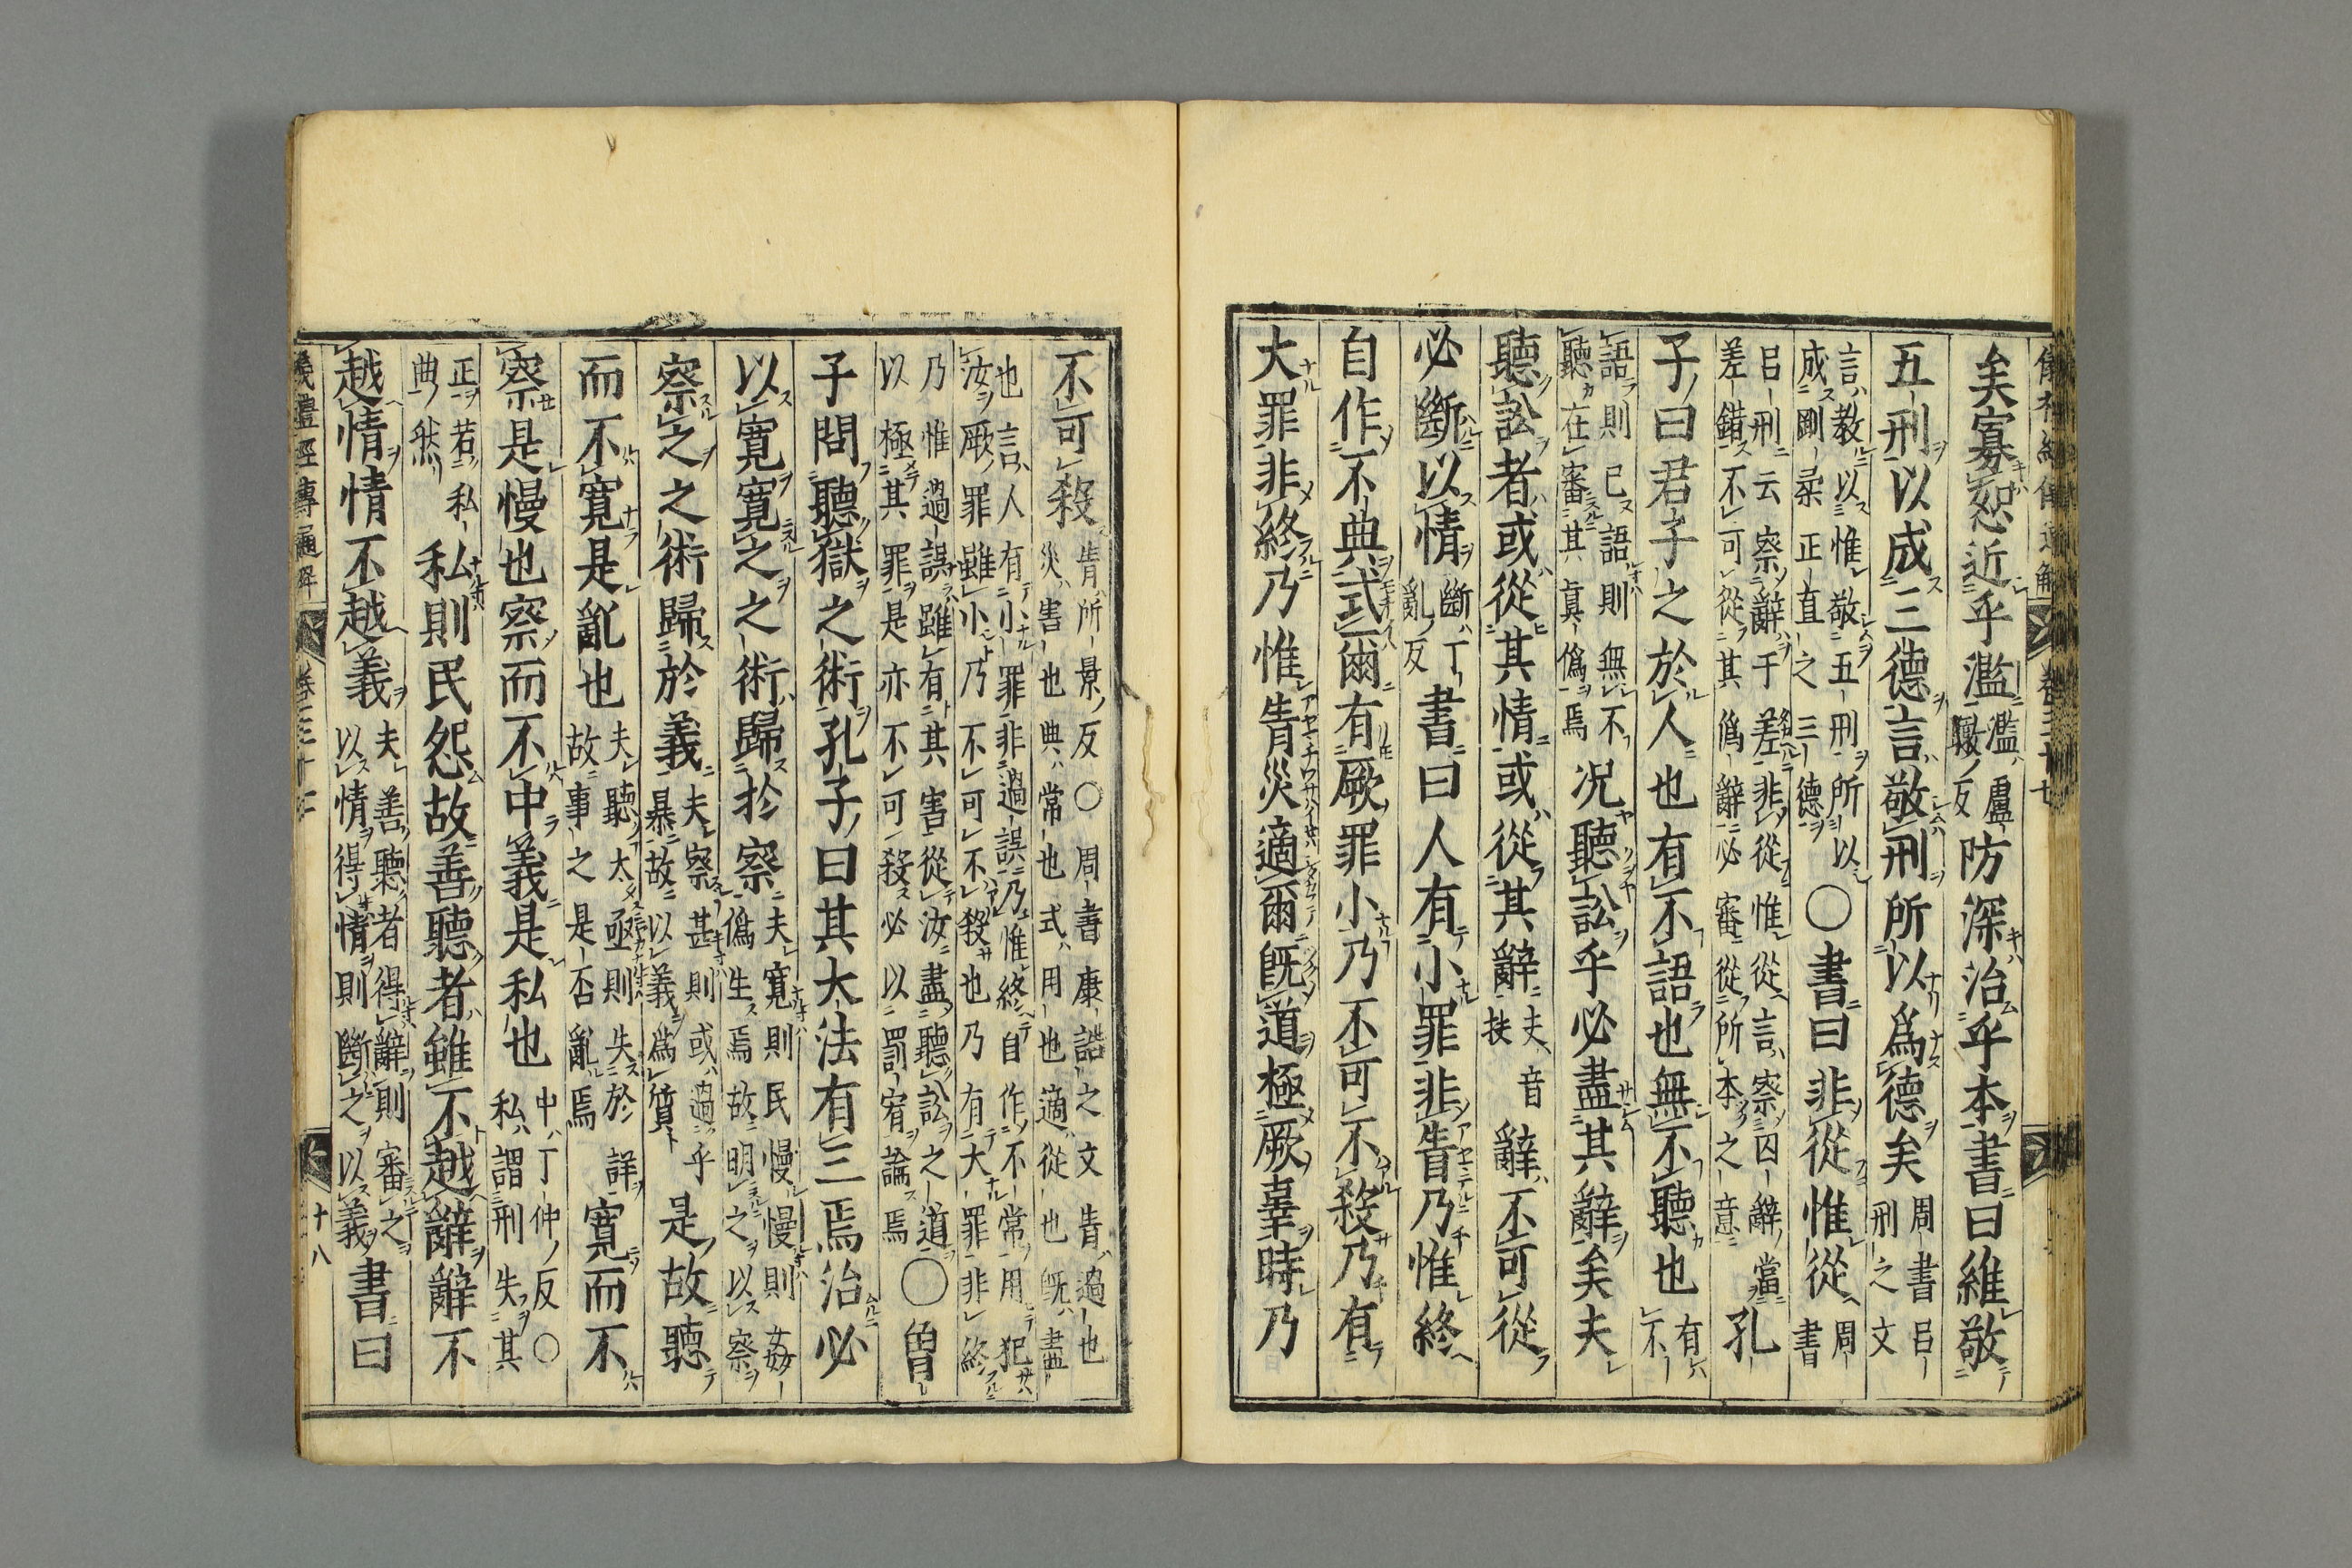 矣寡恕近乎濫濫盧
瞰反防深治乎本書曰維敬
五刑以成三德言敬刑所以爲德矣周書呂
刑之文
言教以惟敬五刑所以
成剛柔正直之三德○書曰非從惟從周
書
呂刑云察辭于差非從惟從言察囚辭當
差錯不可從其僞辭必審從所本之意孔
子曰君子之於人也有不語也無不聽也有
不
語則已語則無不
聽在審其眞僞焉况聽訟乎必盡其辭矣夫
聽訟者或從其情或從其辭夫音
扶辭不可從
必斷以情斷丁
亂反書曰人有小罪非眚乃惟終
自作不典式爾有厥罪小乃不可不殺乃有
大罪非終乃惟眚災適爾既道極厥辜時乃
不可殺眚所景反○周書康誥之文眚過也
災害也典常也式用也適從也既盡
也言人有小罪非過誤乃惟終自作不常用犯
汝厥罪雖小乃不可不殺也乃有大罪非終
乃惟過誤雖有其害從汝盡聽訟之道
以極其罪是亦不可殺必以罰宥論焉○曾
子問聽獄之術孔子曰其大法有三焉治必
以寬寬之之術歸於察夫寬則民慢慢則姦
僞生焉故明之以察
察之之術歸於義夫察甚則或過乎
暴故以義爲質是故聽
而不寬是亂也夫聽太亟則失於詳
故事之是否亂焉寬而不
察是慢也察而不中義是私也中丁仲反○
私謂刑失其
正若私
曲然私則民怨故善聽者雖不越辭辭不
越情情不越義夫善聽者得辭則審之
以情得情則斷之以義書曰
卷三十七
十八